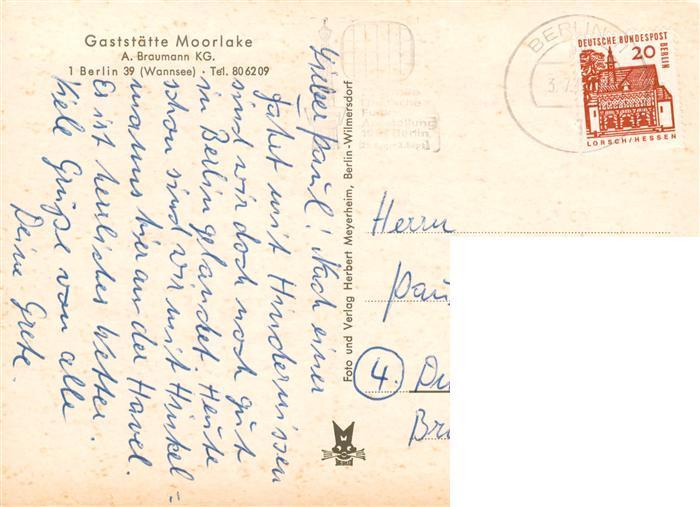 Gaststätte Moorlake
A. Braumann KG.
1 Berlin 39 (Wannsee) · Tel. 806209
Lieber Paul! Nach einer
Fahrt mit Hindernissen
sind wir doch noch gut
in Berlin gelandet. Heute
schon sind wir mit Hinkel-
manns hier an der Havel.
Es ist herrliches Wetter.
Viele Grüße von alle
Deine Grete.
Foto und Verlag Herbert Meyerheim, Berlin-Wilmersdorf
BERLIN
DEUTSCHE BUNDESPOST
BERLIN
20
LORSCH/HESSEN
Herrn
Pau
4. Du
Br